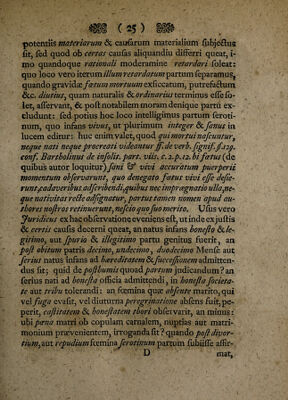 ( 25 )
potentiis materiarum & causarum materialium subjectus
sit, sed quod ob certas causas aliquandiu differri queat, i-
mo quandoque rationali moderamine retardari soleat:
quo loco vero iterum illum retardatum partum separamus,
quando gravidæ fœtum mortuum exiccatum, putrefactum
&c. diutius, quam naturalis & ordinarius terminus esse so-
let, asservant, & post notabilem moram denique partu ex-
cludunt: sed potius hoc loco intelligimus partum seroti-
num, quo infans vivus, ut plurimum integer & sanus in
lucem editur: huc enim valet, quod qui mortui nascuntur,
neque nati neque procreati videantur ff. de verb. signif. l. 129.
conf. Bartholinus de insolit. part. viis. c. 2. p. 12. bi fœtus (de
quibus autor loquitur) sani & vivi accuratum puerperii
momentum observarunt, quo denegato fœtus vivi esse desie-
runt, cadaveribus adscribendi, quibus nec imprægnatio ulla, ne-
que nativitas recte adsignatur, partus tamen nomen apud au-
thores nostros retinuerunt, nescio quo suo merito. Usus vero
Juridicus ex hac observatione eveniens est, ut inde ex justis
& certis causis decerni queat, an natus infans honesto & le-
gitimo, aut spurio & illegitimo partu genitus fuerit, an
post obitum patris decimo, undecimo, duodecimo Mense aut
serius natus infans ad hæreditatem & successionem admitten-
dus sit; quid de posthumis quoad partum judicandum? an
serius nati ad honesta officia admittendi, in honesta societa-
te aut tribu tolerandi: an fœmina quæ absente marito, qui
vel fuga evasit, vel diuturna peregrinatione absens fuit, pe-
perit, castitatem & honestatem thori observarit, an minus:
ubi pœna matri ob copulam carnalem, nuptias aut matri-
monium prævenientem, irroganda sit? quando post divor-
tium, aut repudium fœmina serotinum partum subiisse affir-
D mat,